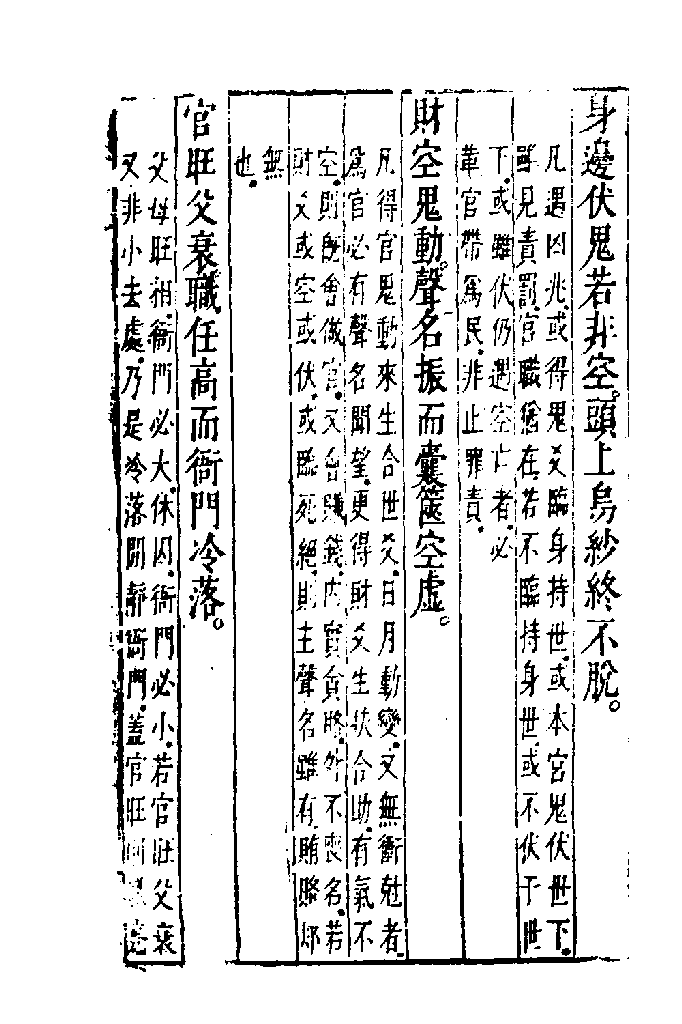 身邊伏鬼若非空。頭上烏紗終不脫。
凡遇凶兆。或得鬼爻臨身持世。或本宮鬼伏世下。
雖見責罰。官職猶在。若不臨持身世。或不伏于世
下。或雖伏仍遇空亡者。必
革官帶為民。非止罪責。
財空鬼動。聲名振而囊篋空虛。
凡得官鬼動來生合世爻。日月動變。又無衝尅者。
為官必有聲名聞望。更得財爻生扶合助。有氣不
空。則既會做官。又會賺錢。内實貪賂。外不喪名。若
財爻或空或伏。或臨死絕。則主聲名雖有。賄賂却
無
也。
官旺父衰。職任高而衙門冷落。
父母旺相。衙門必大。休囚。衙門必小。若官旺父衰
又非小去處。乃是冷落閒靜衙門。蓋官旺